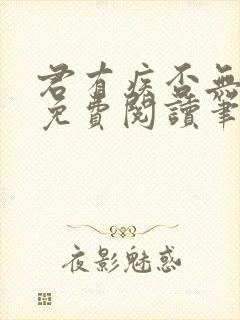 君有疾否無
免費閱讀筆
夜影魅惑